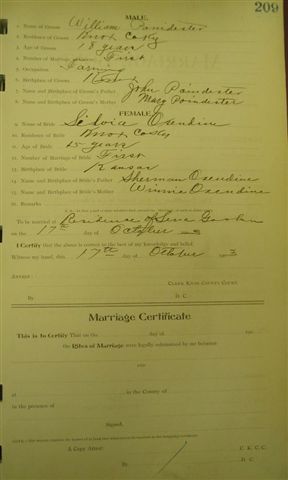 209
MALE.
1. Name of Groom William Poindexter
2. Residence of Groom Knox Co Ky
3. Age of Groom 18 years
4. Number of Marriage of Groom First
5. Occupation Farming
6. Birthplace of Groom
7. Name and Birthplace of Groom's Father John Poindexter
8. Name and Birthplace of Groom's Mother Mary Poindexter
FEMALE
9. Name of Bride Oxendine
10. Residence of Bride Knox Co Ky
11. Age of Bride 15 years
12. Number of Marriage of Bride First
13. Birthplace of Bride Kansas
14. Name and Birthplace of Bride's Father Sherman Oxendine
15. Name and Birthplace of Bride's Mother Winnie Oxendine
16. Remarks
To be married at Residence of
on the 17th day of October
I Certify that the above is correct to the best of my knowledge and belief.
Witness my hand, this 17th day of October 3
Attest:
Clerk Knox County Court.
By D. C.
Marriage Certificate
This is to Certify That on the day of
the Rites of Marriage were legally solemnized by me between
and
at in the County of
in the presence of
Signed,
A Copy Attest: C. K. C. C.
By D. C.